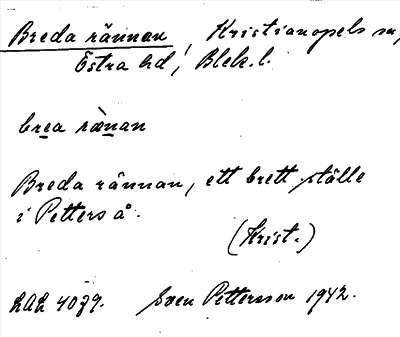 Breda rännan, Kristianopels sn,
Östra hd, Blek. l.
brea rænan
Breda rännan, ett brett ställe
i Petters å.
(Krist.)
LAL 4079. Sven Pettersson 1942.